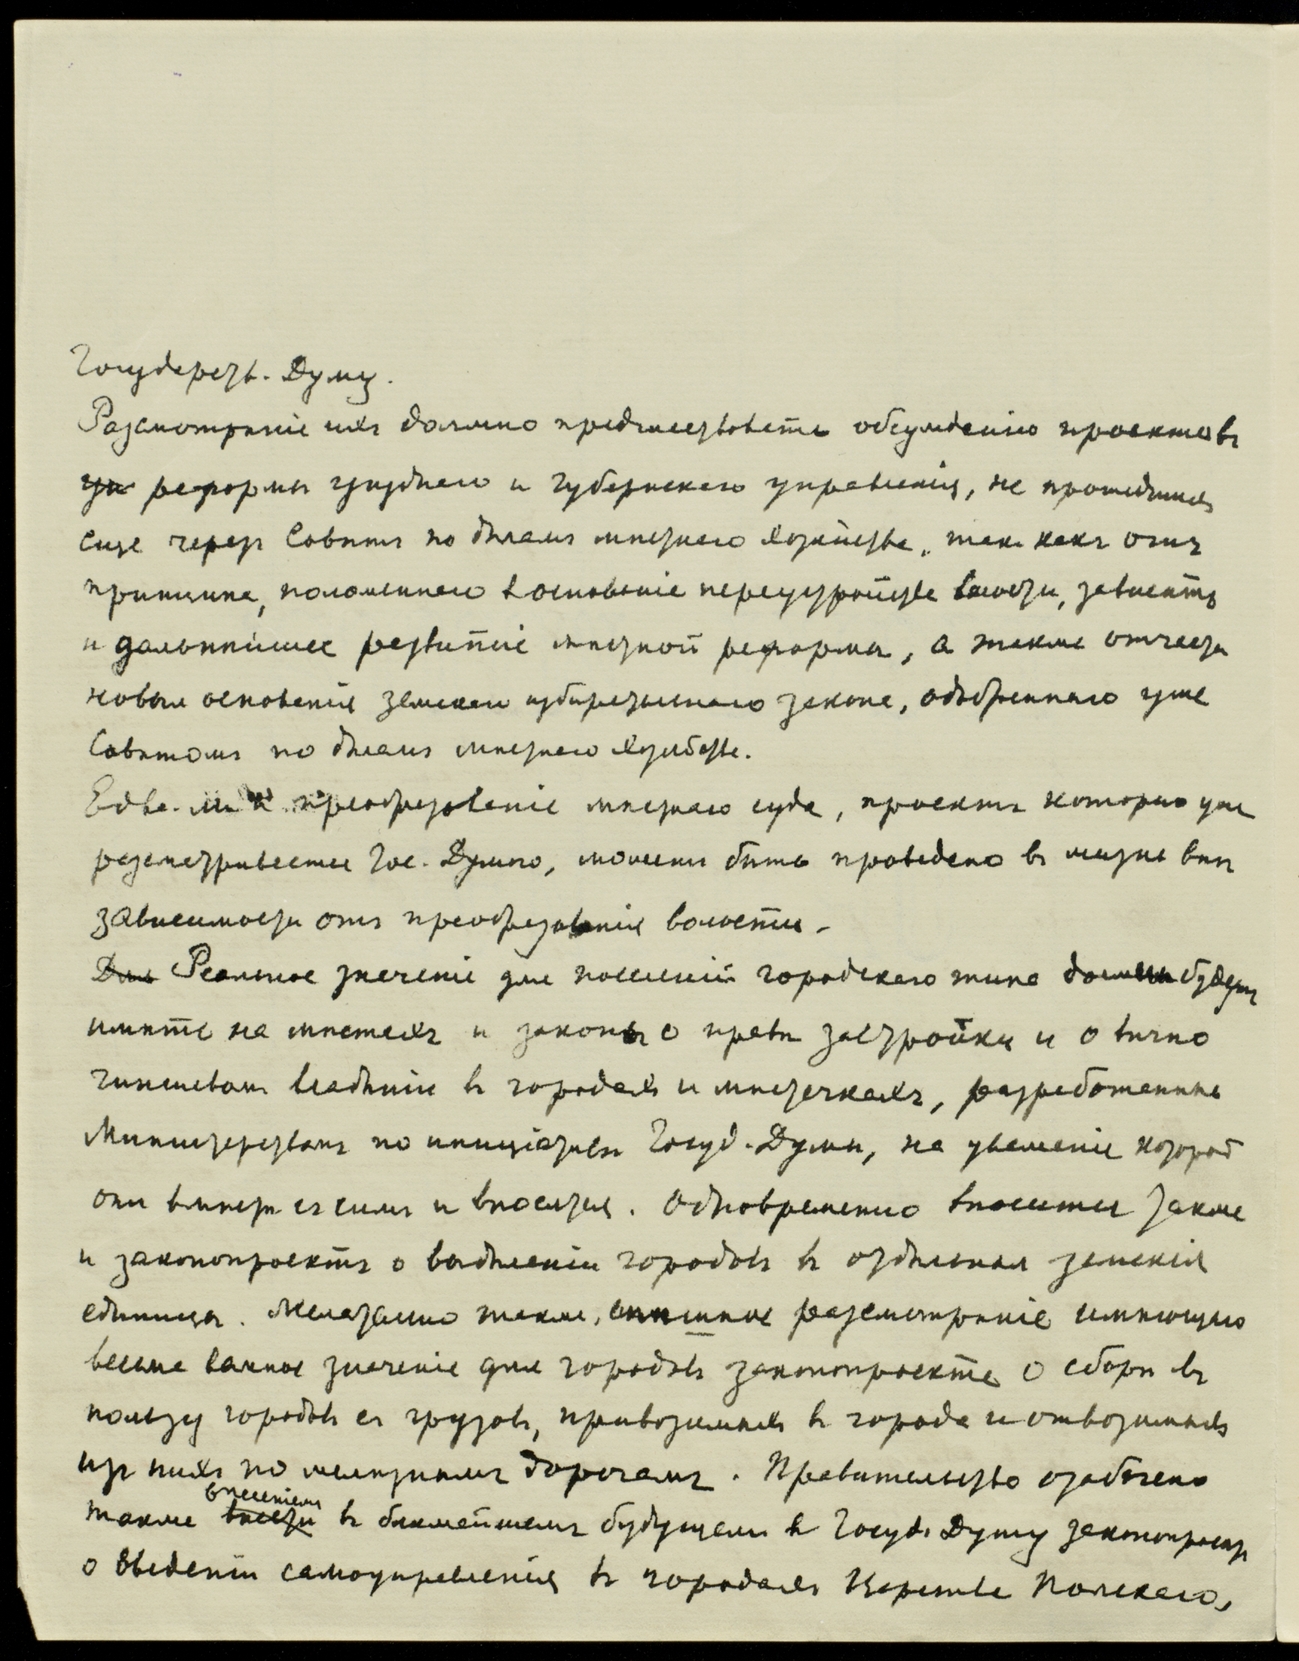 Государств. Думу.
Разсмотрѣніе ихъ должно предшествовать обсужденію проектовъ
реформы уѣзднаго и губернскаго управленія, не прошедшихъ
еще черезъ Совѣтъ по дѣламъ мѣстнаго хозяйства, так какъ отъ
принципа, положеннаго въ основаніе переустройства волости, зависитъ
и дальнѣйшее развитіе мѣстной реформы, а также отчасти
новыя основанія земскаго избирательнаго закона, одобреннаго уже
Совѣтомъ по дѣламъ мѣстнаго хозяйства.
Едва-ли и преобразованіе мѣстнаго суда, проектъ котораго уже
разсматривается Гос. Думою, можетъ быть проведено въ жизнь внѣ
зависимости отъ преобразованія волости.
Для Реальное значеніе для поселеній городского типа будутъ
имѣть на мѣстахъ и законы о правѣ застройки и о вѣчно
чиншевомъ владѣніи въ городахъ и мѣстечкахъ, разработанные
Министерствомъ по иниціативѣ Госуд. Думы, на уваженіе которой
они вмѣстѣ съ симъ и вносятся. Одновременно вносится также
и законопроектъ о выдѣленіи городовъ въ отдѣльныя земскія
единицы. Желательно также, спѣшное разсмотрѣніе имѣющаго
весьма важное значеніе для городовъ законопроекта о сборѣ въ
пользу городовъ съ грузовъ, привозимыхъ въ города и отвозимыхъ
изъ нихъ по желѣзнымъ дорогамъ. Правительство озабочено
внесеніемъ
также внести въ ближайшемъ будущемъ въ Госуд. Думу законопроекта
о введеніи самоуправленія въ городахъ Царства Польскаго,